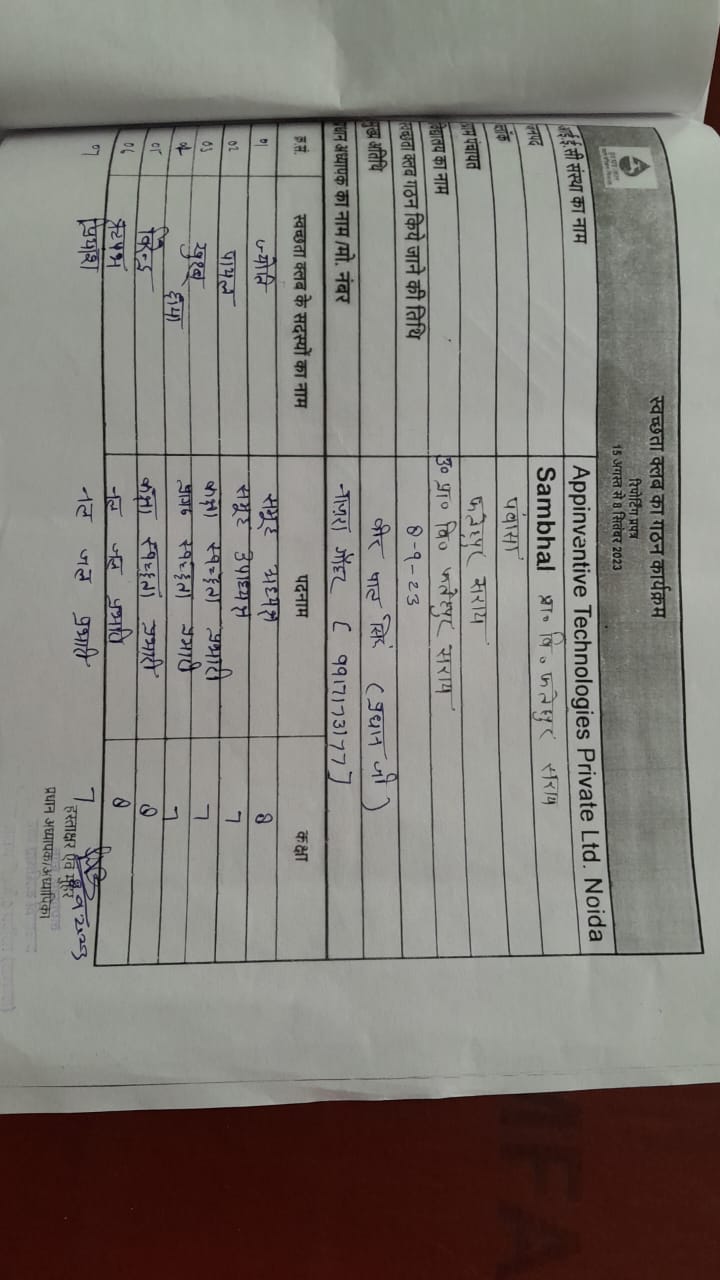 स्वच्छता क्लब का गठन कार्यक्रम
रिपोर्टिंग प्रपत्र
15 अगस्त से 8 सितंबर 2023
आई ई सी संस्था का नाम Appinventive Technologies Private Ltd. Noida
जनपद Sambhal प्रा० वि० फतेहपुर सराय
ब्लॉक पंवासा
ग्राम पंचायत फतेहपुर सराय
विद्यालय का नाम उ० प्रा० वि० फतेहपुर सराय
स्वच्छता क्लब गठन किये जाने की तिथि 8-9-23
मुख्य अतिथि वीर पाल सिंह (प्रधान जी)
प्रधान अध्यापक का नाम /मो. नंबर गौहर (9917173177)
क्र.सं. स्वच्छता क्लब के सदस्यों का नाम पदनाम कक्षा
01 ज्योति समूह अध्यक्ष 8
02 पायल समूह उपाध्यक्ष 7
03 खुशबू कक्षा स्वच्छता प्रभारी 7
04 स्वच्छता प्रभारी 7
05 कक्षा स्वच्छता प्रभारी 8
06 नल जल प्रभारी 8
07 नल जल प्रभारी 7
हस्ताक्षर एवं मुहर
प्रधान अध्यापक/अध्यापिका